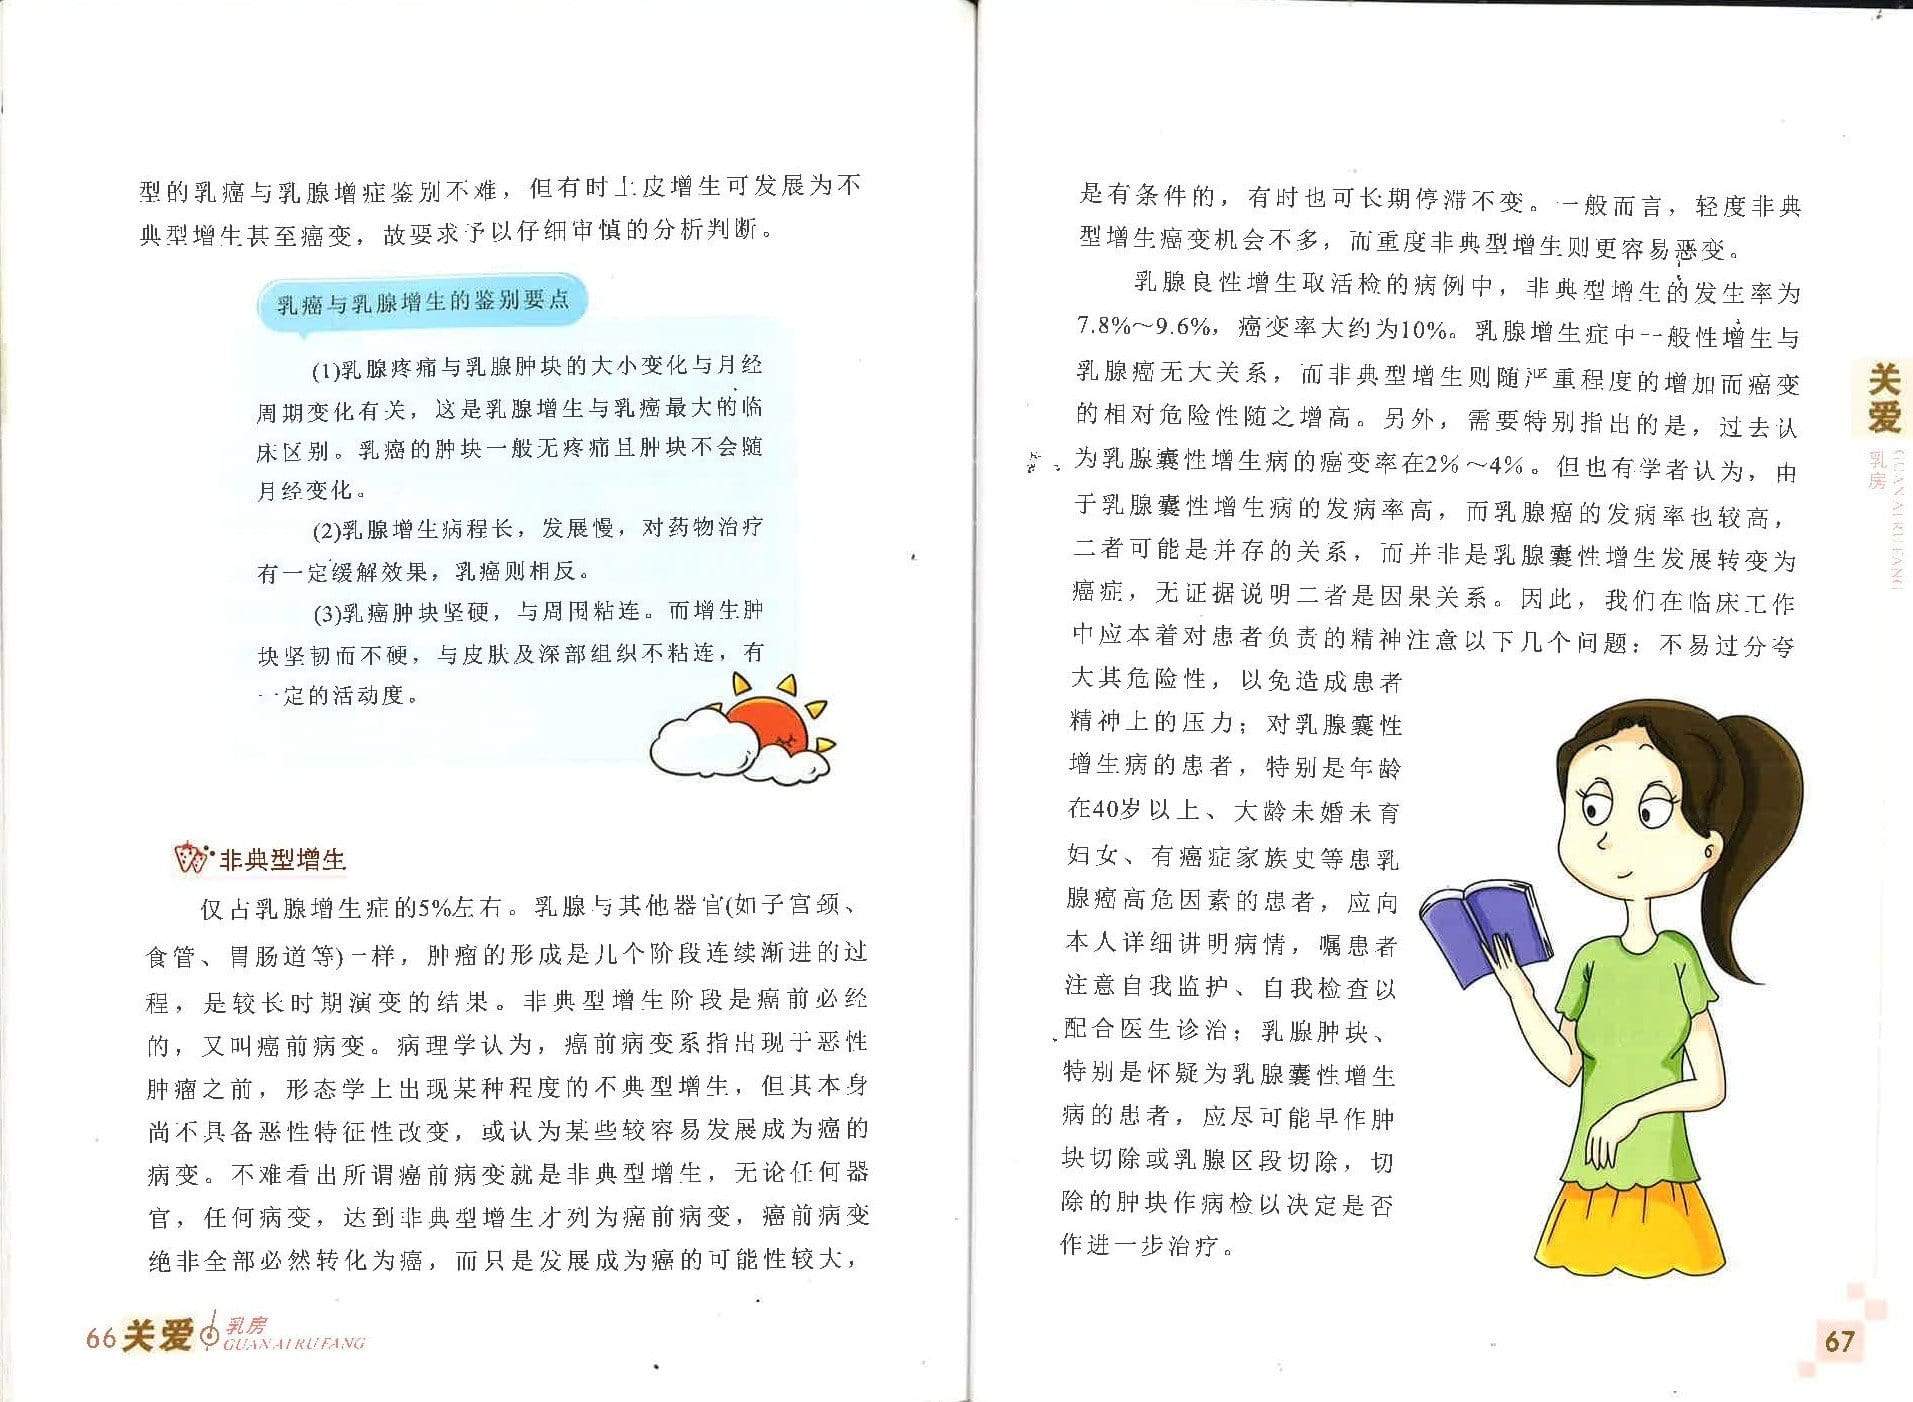 型的乳癌与乳腺增症鉴别不难，但有时上皮增生可发展为不
典型增生甚至癌变，故要求予以仔细审慎的分析判断。
乳癌与乳腺增生的鉴别要点
(1)乳腺疼痛与乳腺肿块的大小变化与月经
周期变化有关，这是乳腺增生与乳癌最大的临
床区别。乳癌的肿块一般无疼痛且肿块不会随
月经变化。
(2)乳腺增生病程长，发展慢，对药物治疗
有一定缓解效果，乳癌则相反。
(3)乳癌肿块坚硬，与周围粘连。而增生肿
块坚韧而不硬，与皮肤及深部组织不粘连，有
一定的活动度。
非典型增生
仅占乳腺增生症的5%左右。乳腺与其他器官(如子宫颈、
食管、胃肠道等)一样，肿瘤的形成是几个阶段连续渐进的过
程，是较长时期演变的结果。非典型增生阶段是癌前必经
的，又叫癌前病变。病理学认为，癌前病变系指出现于恶性
肿瘤之前，形态学上出现某种程度的不典型增生，但其本身
尚不具备恶性特征性改变，或认为某些较容易发展成为癌的
病变。不难看出所谓癌前病变就是非典型增生，无论任何器
官，任何病变，达到非典型增生才列为癌前病变，癌前病变
绝非全部必然转化为癌，而只是发展成为癌的可能性较大，
66 关爱 乳房
GUAN AI RU FANG
是有条件的，有时也可长期停滞不变。一般而言，轻度非典
型增生癌变机会不多，而重度非典型增生则更容易恶变。
乳腺良性增生取活检的病例中，非典型增生的发生率为
7.8%～9.6%，癌变率大约为10%。乳腺增生症中一般性增生与
乳腺癌无大关系，而非典型增生则随严重程度的增加而癌变
的相对危险性随之增高。另外，需要特别指出的是，过去认
为乳腺囊性增生病的癌变率在2%～4%。但也有学者认为，由
于乳腺囊性增生病的发病率高，而乳腺癌的发病率也较高，
二者可能是并存的关系，而并非是乳腺囊性增生发展转变为
癌症，无证据说明二者是因果关系。因此，我们在临床工作
中应本着对患者负责的精神注意以下几个问题：不易过分夸
大其危险性，以免造成患者
精神上的压力；对乳腺囊性
增生病的患者，特别是年龄
在40岁以上、大龄未婚未育
妇女、有癌症家族史等患乳
腺癌高危因素的患者，应向
本人详细讲明病情，嘱患者
注意自我监护、自我检查以
配合医生诊治；乳腺肿块、
特别是怀疑为乳腺囊性增生
病的患者，应尽可能早作肿
块切除或乳腺区段切除，切
除的肿块作病检以决定是否
作进一步治疗。
关爱
乳房
GUAN AI RU FANG
67